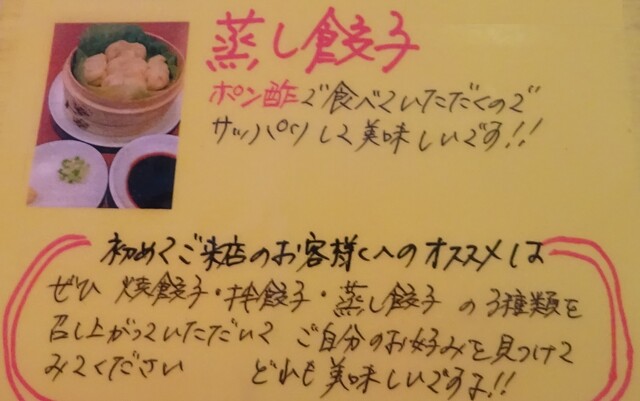 蒸し餃子
ポン酢で食べていただくので
サッパリして美味しいです!!
初めてご来店のお客様へのオススメは
ぜひ 焼餃子・水餃子・蒸し餃子 の3種類を
召し上がっていただいて ご自分のお好みを見つけて
みてください どれも美味しいですよ!!